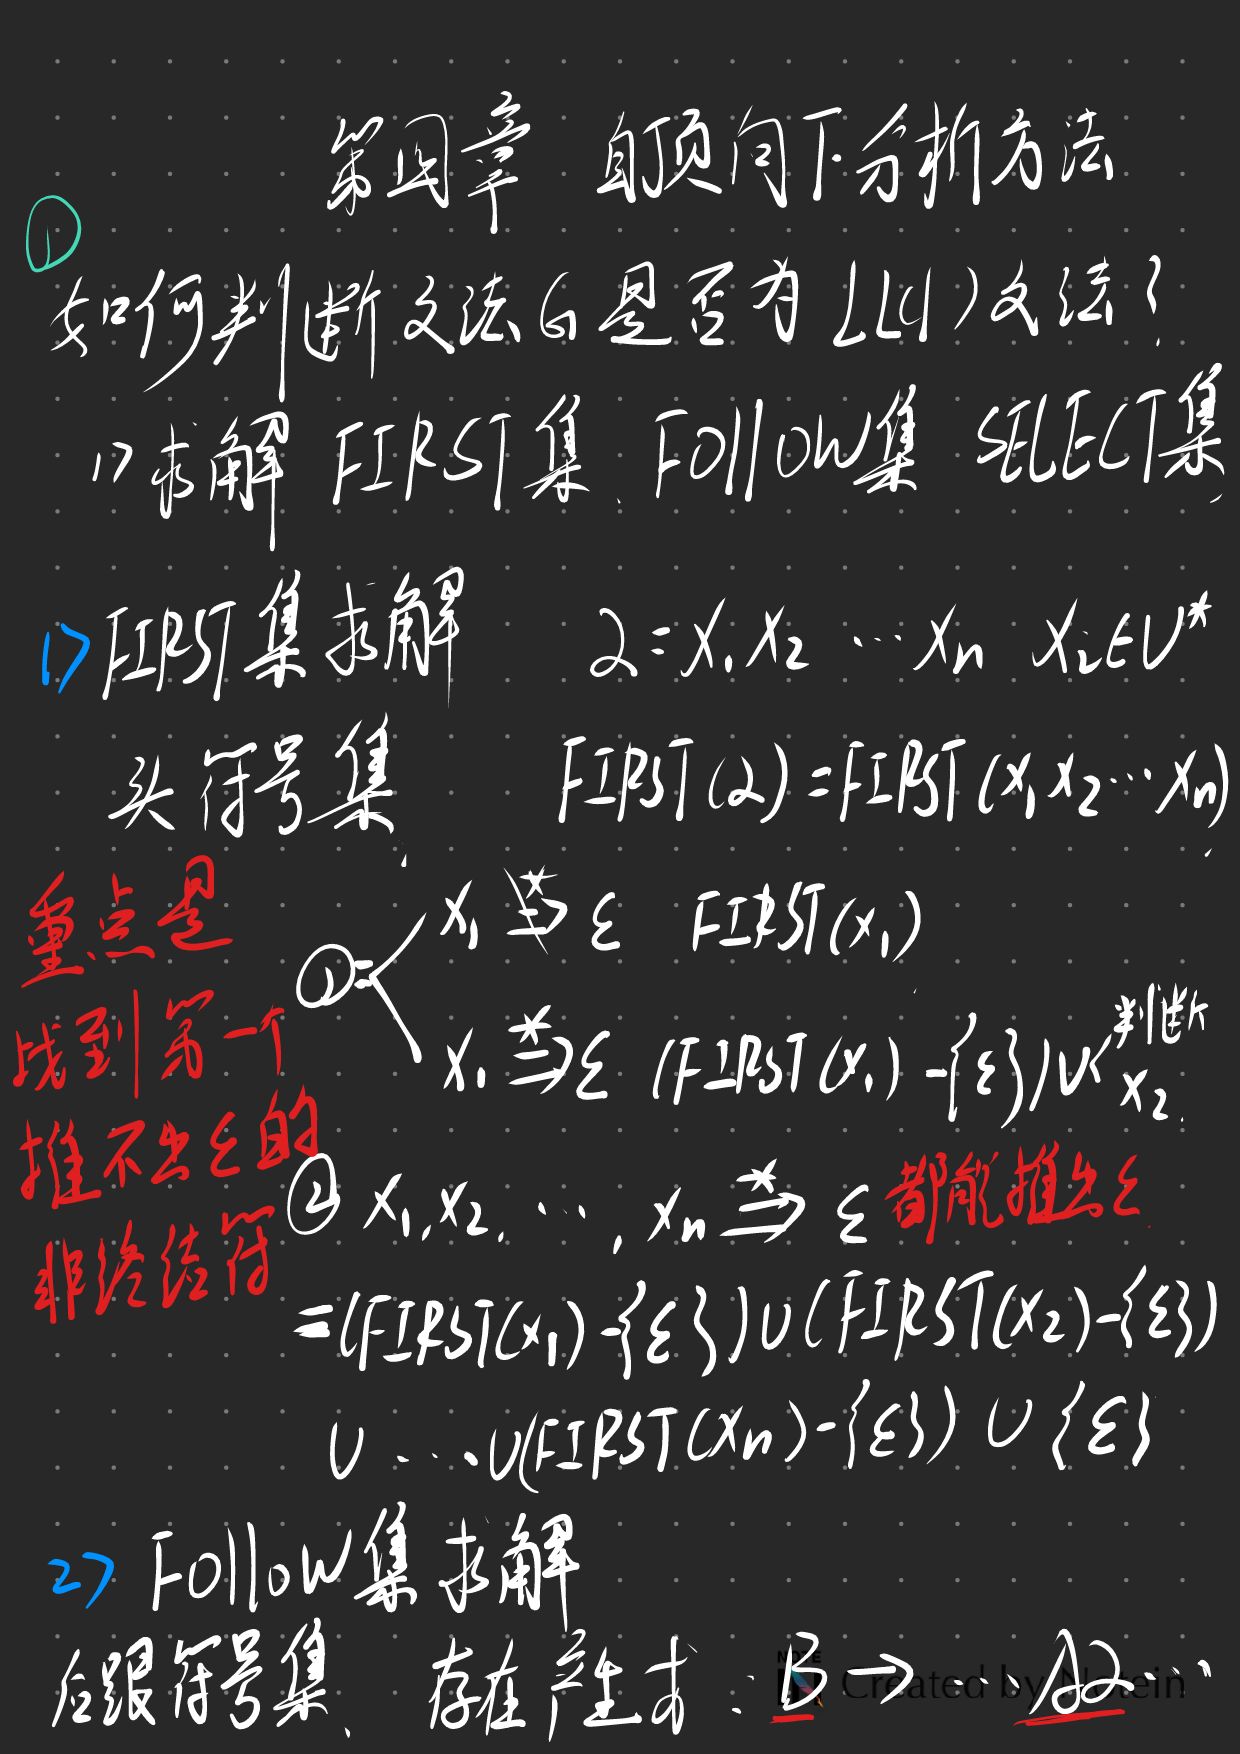 第四章 自顶向下分析方法
①
如何判断文法G是否为LL(1)文法?
1> 求解 FIRST集、Follow集 SELECT集
1> FIRST集求解 α=X₁X₂…Xn Xi∈V*
头符号集、 FIRST(α)=FIRST(X₁X₂…Xn)
重点是
找到第一个
推不出ε的
非终结符
①= X₁ ⇏* ε FIRST(X₁)
X₁ ⇒* ε (FIRST(X₁)-{ε})∪ 判断
X₂
② X₁,X₂,…,Xn ⇒* ε 都能推出ε
=(FIRST(X₁)-{ε})∪(FIRST(X₂)-{ε})
∪…∪(FIRST(Xn)-{ε})∪{ε}
2> Follow集求解
后跟符号集、 存在产生式: B→…Aα…
NOTE Created by Notein